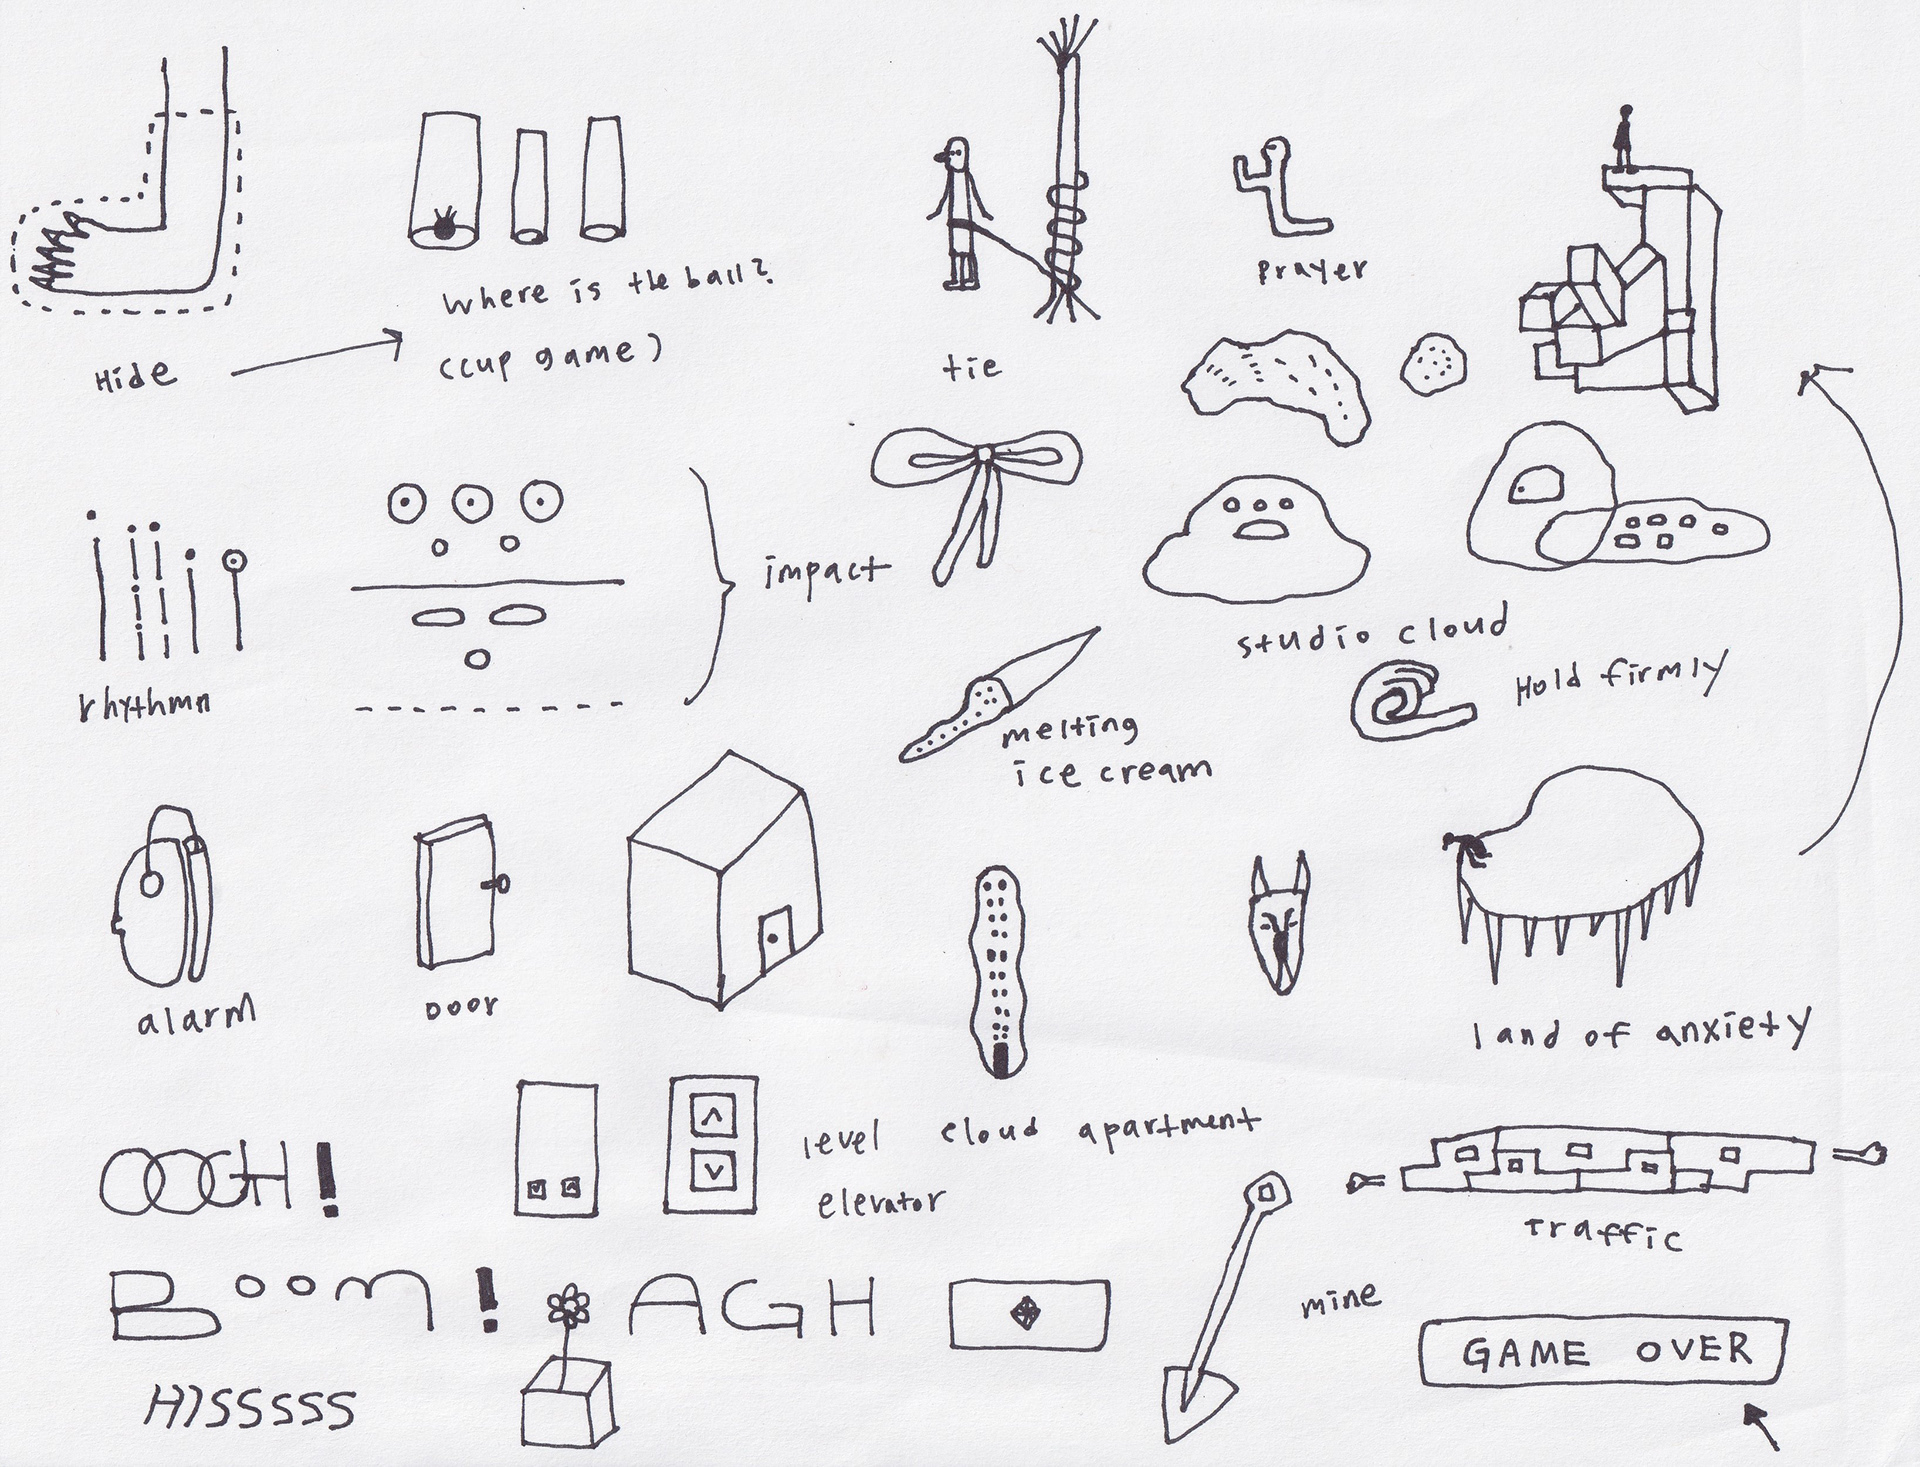 Hide
Where is the ball?
(cup game)
tie
prayer
rhythmn
impact
studio cloud
Hold firmly
melting
ice cream
alarm
Door
land of anxiety
OOGH!
level cloud apartment
elevator
Traffic
BooM!
AGH
mine
GAME OVER
HISSSSS